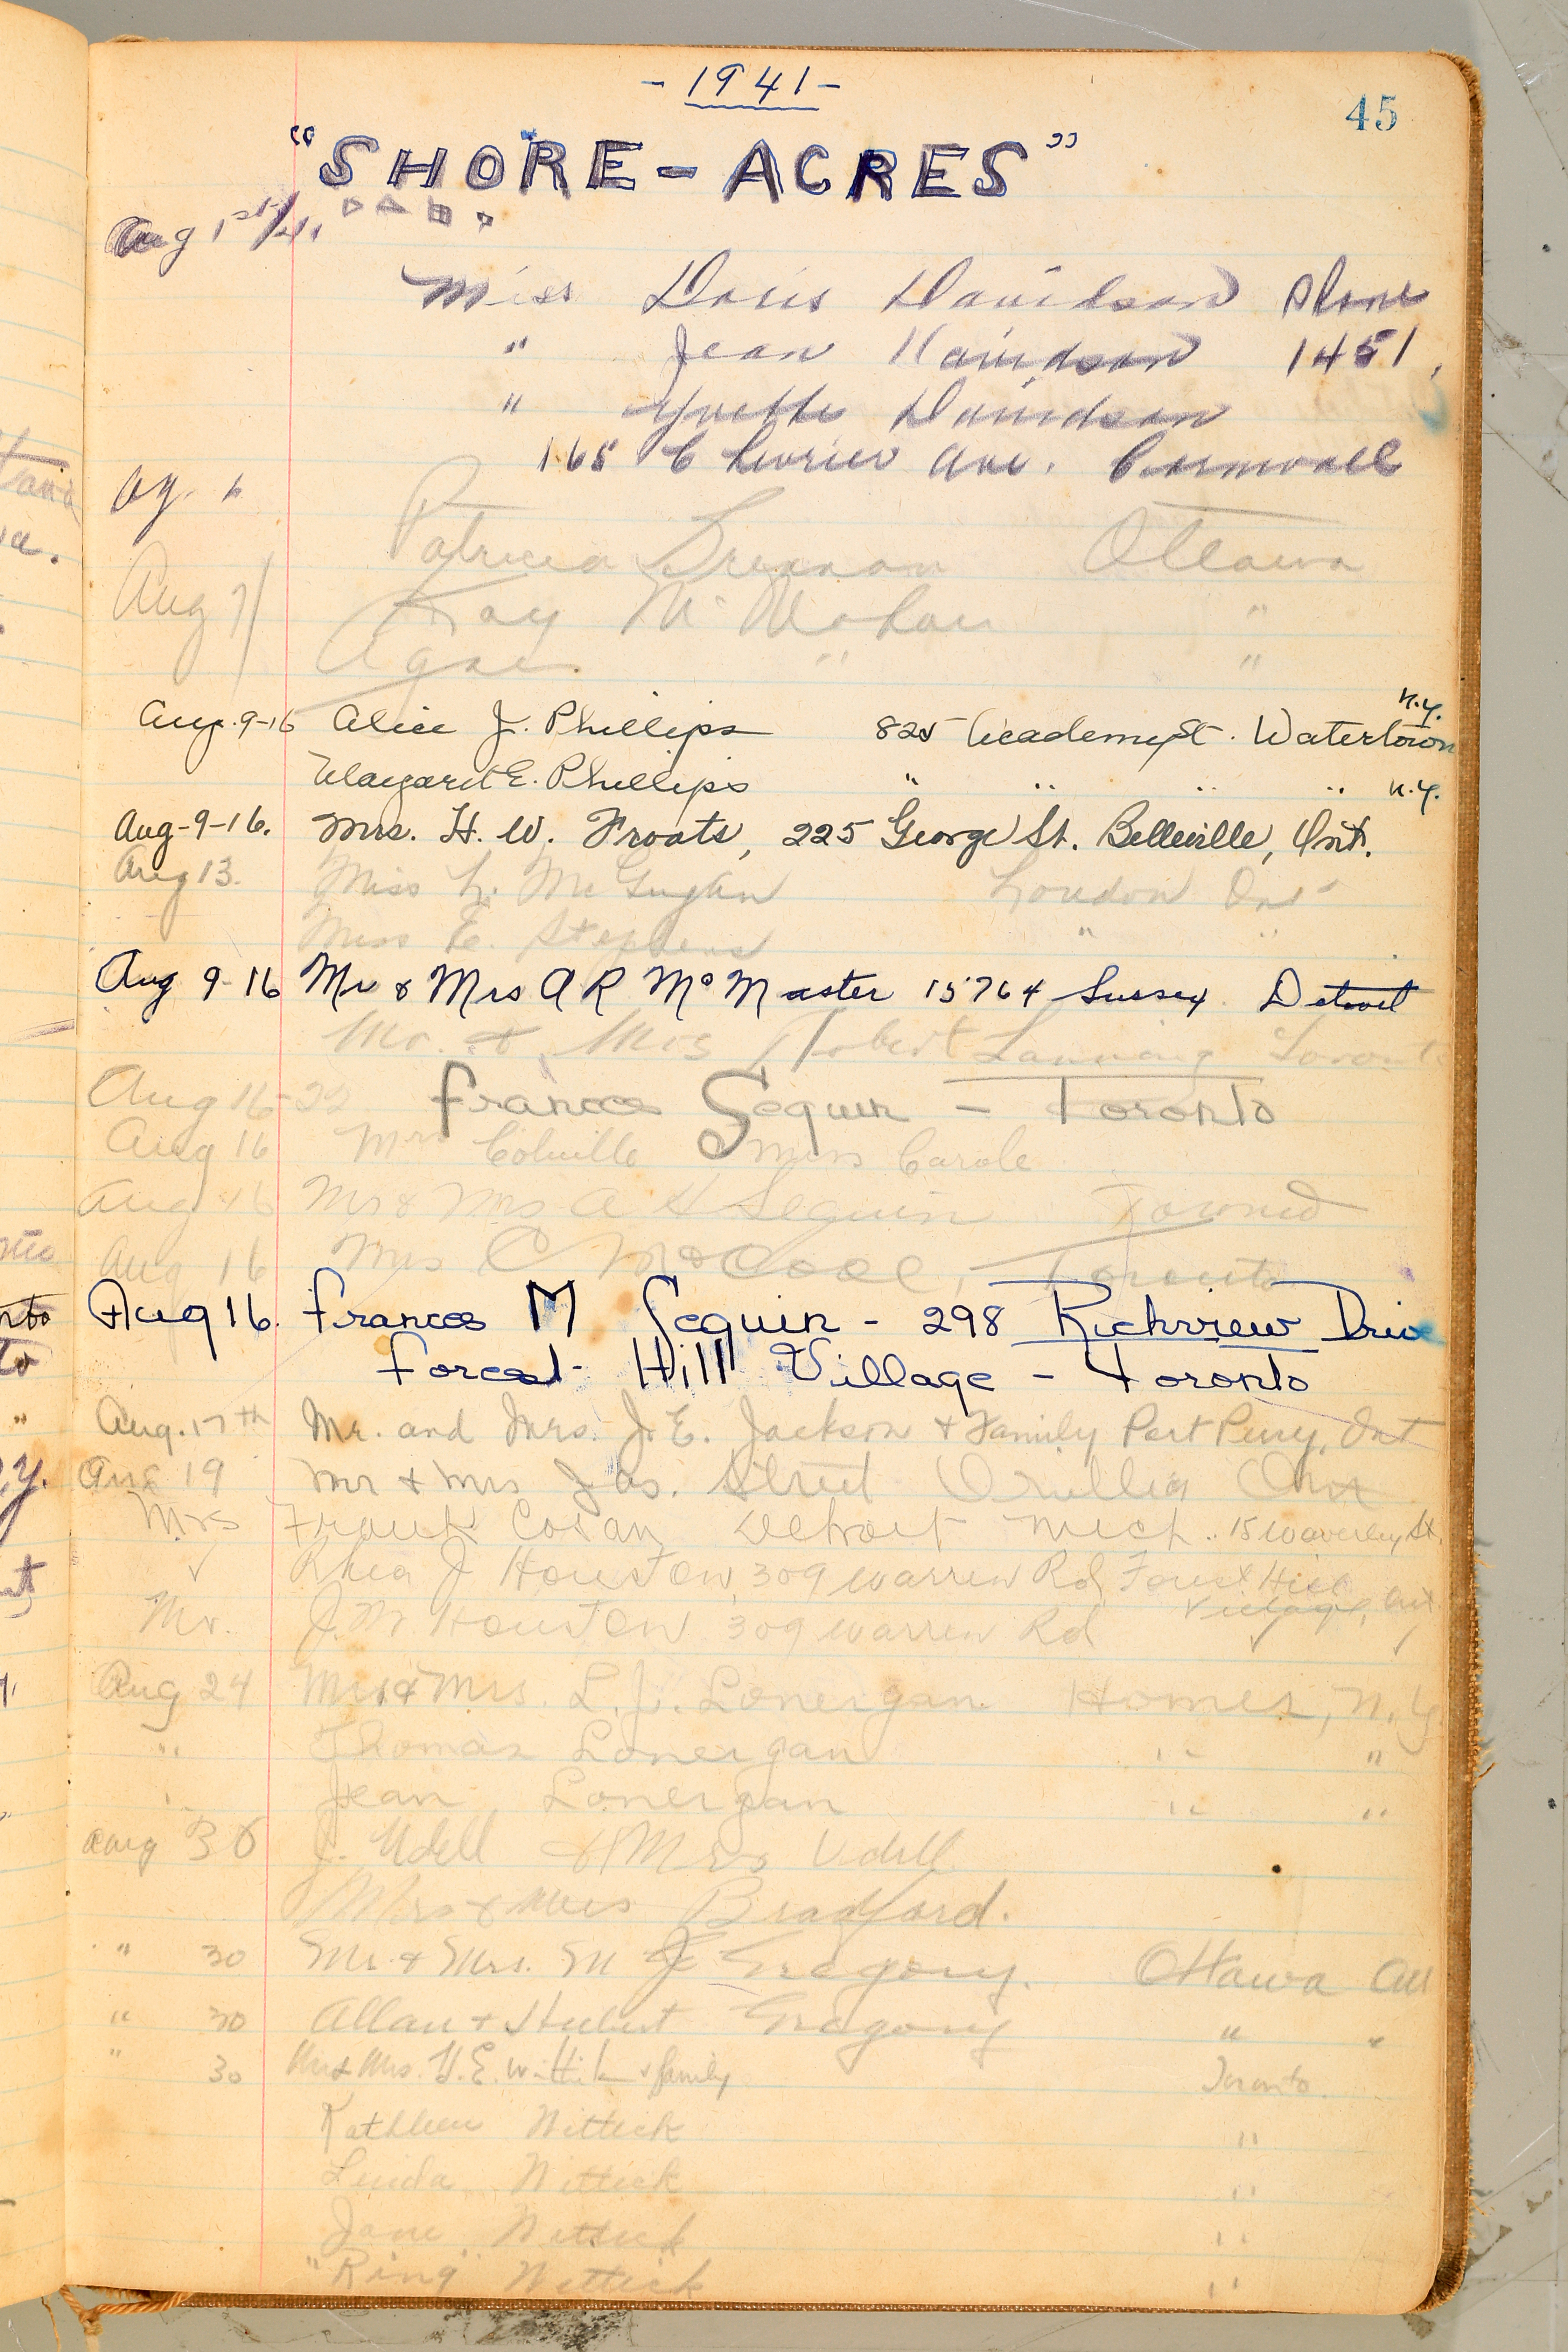 - 1941 -
45
"SHORE-ACRES"
Aug 1st/41.
Miss Doris Davidson Phone
" Jean Davidson 1451,
" Yvette Davidson
165 Chevrier Ave. Cornwall
Ag. 6
Patricia Brennan Ottawa
Aug 7/ Kay McMahon "
Agnes " "
Aug. 9-16 Alice J. Phillips 825 Academy St. Watertown N.Y.
Margaret E. Phillips " " " " N.Y.
Aug-9-16. Mrs. H. W. Froats, 225 George St. Belleville, Ont.
Aug 13. Miss L. McGugan London Ont
Miss E. Stephens " "
Aug 9-16 Mr & Mrs A R McMaster 15764 Sussex Detroit
Mr. & Mrs Robert Lanning Toronto
Aug 16-22 Frances Seguin - Toronto
Aug 16 Mrs Colville Miss Carole
Aug 16 Mr & Mrs A H Seguin
Aug 16 Mrs C McCool, Toronto
Aug 16. Frances M Seguin - 298 Richview Drive
Forest Hill Village - Toronto
Aug. 17th Mr. and Mrs. J. E. Jackson & Family Port Perry, Ont
Aug 19 Mr & Mrs Jas. Street Orillia Ont
Mrs Frank Detroit Mich. 15 Waverley St.
✓ Rhea J Houston, 309 Warren Rd, Forest Hill
Village, Ont.
Mr. J. M Houston 309 Warren Rd ✓ ✓
Aug 24 Mr. & Mrs. L. J. Lonergan Homer, N.Y
" Thomas Lonergan " "
Jean Lonergan " "
Aug 30 J. Udell & Mrs Udell
Bradford.
" 30 Mr. & Mrs. M J Gregory. Ottawa Ont
" 30 Allan & Hubert Gregory " "
" 30 Mr & Mrs. H. E. Wittick & family Toronto.
Kathleen Wittick "
Linda Wittick "
Jane Wittick "
"Ring" Wittick "